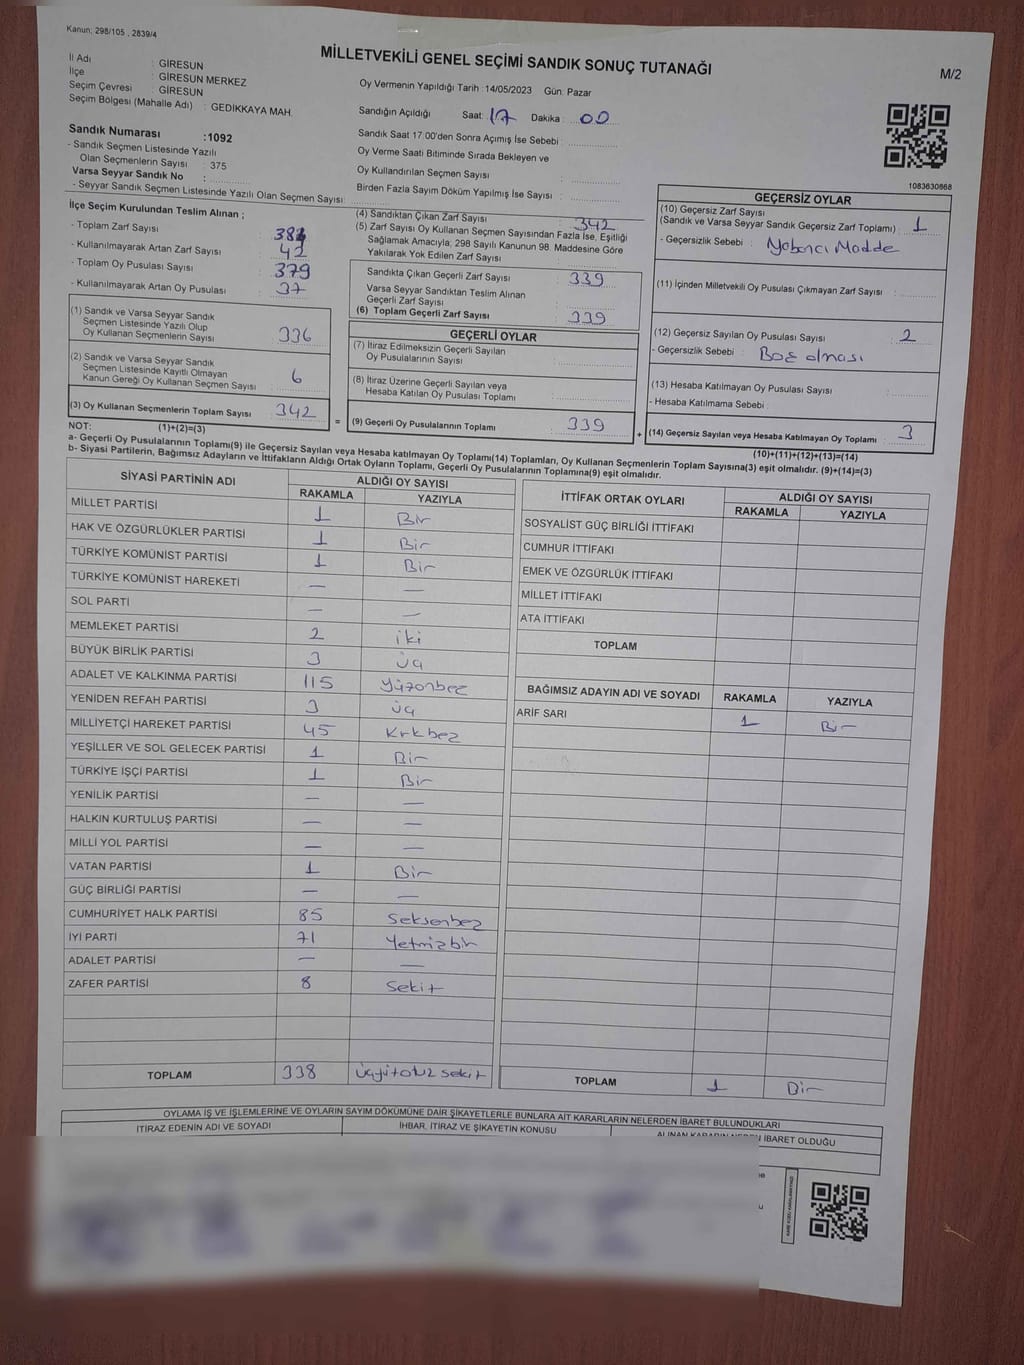 Kanun; 298/105 , 2839/4
MİLLETVEKİLİ GENEL SEÇİMİ SANDIK SONUÇ TUTANAĞI
M/2
İl Adı : GİRESUN
İlçe : GİRESUN MERKEZ
Seçim Çevresi : GİRESUN
Seçim Bölgesi (Mahalle Adı) : GEDİKKAYA MAH.
Sandık Numarası :1092
- Sandık Seçmen Listesinde Yazılı
Olan Seçmenlerin Sayısı : 375
Varsa Seyyar Sandık No :
- Seyyar Sandık Seçmen Listesinde Yazılı Olan Seçmen Sayısı:
Oy Vermenin Yapıldığı Tarih : 14/05/2023 Gün: Pazar
Sandığın Açıldığı Saat: 17 Dakika : 00
Sandık Saat 17:00'den Sonra Açımış İse Sebebi :
Oy Verme Saati Bitiminde Sırada Bekleyen ve
Oy Kullandırılan Seçmen Sayısı :
Birden Fazla Sayım Döküm Yapılmış İse Sayısı :
1083630868
İlçe Seçim Kurulundan Teslim Alınan ;
- Toplam Zarf Sayısı : 384
- Kullanılmayarak Artan Zarf Sayısı : 42
- Toplam Oy Pusulası Sayısı : 379
- Kullanılmayarak Artan Oy Pusulası : 37
(1) Sandık ve Varsa Seyyar Sandık
Seçmen Listesinde Yazılı Olup
Oy Kullanan Seçmenlerin Sayısı : 336
(2) Sandık ve Varsa Seyyar Sandık
Seçmen Listesinde Kayıtlı Olmayan
Kanun Gereği Oy Kullanan Seçmen Sayısı : 6
(3) Oy Kullanan Seçmenlerin Toplam Sayısı : 342
(1)+(2)=(3)
(4) Sandıktan Çıkan Zarf Sayısı : 342
(5) Zarf Sayısı Oy Kullanan Seçmen Sayısından Fazla İse, Eşitliği
Sağlamak Amacıyla; 298 Sayılı Kanunun 98. Maddesine Göre
Yakılarak Yok Edilen Zarf Sayısı :
Sandıkta Çıkan Geçerli Zarf Sayısı : 339
Varsa Seyyar Sandıktan Teslim Alınan
Geçerli Zarf Sayısı :
(6) Toplam Geçerli Zarf Sayısı : 339
GEÇERLİ OYLAR
(7) İtiraz Edilmeksizin Geçerli Sayılan
Oy Pusulalarının Sayısı :
(8) İtiraz Üzerine Geçerli Sayılan veya
Hesaba Katılan Oy Pusulaları Toplamı :
= (9) Geçerli Oy Pusulalarının Toplamı : 339
GEÇERSİZ OYLAR
(10) Geçersiz Zarf Sayısı
(Sandık ve Varsa Seyyar Sandık Geçersiz Zarf Toplamı) : 1
- Geçersizlik Sebebi : Yabancı Madde
(11) İçinden Milletvekili Oy Pusulası Çıkmayan Zarf Sayısı :
(12) Geçersiz Sayılan Oy Pusulası Sayısı : 2
- Geçersizlik Sebebi : Boş olması
(13) Hesaba Katılmayan Oy Pusulası Sayısı :
- Hesaba Katılmama Sebebi :
+ (14) Geçersiz Sayılan veya Hesaba Katılmayan Oy Toplamı : 3
(10)+(11)+(12)+(13)=(14)
NOT:
a- Geçerli Oy Pusulalarının Toplamı(9) ile Geçersiz Sayılan veya Hesaba katılmayan Oy Toplamı(14) Toplamları, Oy Kullanan Seçmenlerin Toplam Sayısına(3) eşit olmalıdır. (9)+(14)=(3)
b- Siyasi Partilerin, Bağımsız Adayların ve İttifakların Aldığı Ortak Oyların Toplamı, Geçerli Oy Pusulalarının Toplamına(9) eşit olmalıdır.
SİYASİ PARTİNİN ADI ALDIĞI OY SAYISI
RAKAMLA YAZIYLA
MİLLET PARTİSİ 1 Bir
HAK VE ÖZGÜRLÜKLER PARTİSİ 1 Bir
TÜRKİYE KOMÜNİST PARTİSİ 1 Bir
TÜRKİYE KOMÜNİST HAREKETİ — —
SOL PARTİ — —
MEMLEKET PARTİSİ 2 iki
BÜYÜK BİRLİK PARTİSİ 3 üç
ADALET VE KALKINMA PARTİSİ 115 Yüzonbeş
YENİDEN REFAH PARTİSİ 3 üç
MİLLİYETÇİ HAREKET PARTİSİ 45 Krkbeş
YEŞİLLER VE SOL GELECEK PARTİSİ 1 Bir
TÜRKİYE İŞÇİ PARTİSİ 1 Bir
YENİLİK PARTİSİ — —
HALKIN KURTULUŞ PARTİSİ — —
MİLLİ YOL PARTİSİ — —
VATAN PARTİSİ 1 Bir
GÜÇ BİRLİĞİ PARTİSİ — —
CUMHURİYET HALK PARTİSİ 85 Seksenbeş
İYİ PARTİ 71 Yetmişbir
ADALET PARTİSİ — —
ZAFER PARTİSİ 8 Sekiz
TOPLAM 338 üçyüzotuz sekiz
İTTİFAK ORTAK OYLARI ALDIĞI OY SAYISI
RAKAMLA YAZIYLA
SOSYALİST GÜÇ BİRLİĞİ İTTİFAKI
CUMHUR İTTİFAKI
EMEK VE ÖZGÜRLÜK İTTİFAKI
MİLLET İTTİFAKI
ATA İTTİFAKI
TOPLAM
BAĞIMSIZ ADAYIN ADI VE SOYADI RAKAMLA YAZIYLA
ARİF SARI 1 Bir
TOPLAM 1 Bir
OYLAMA İŞ VE İŞLEMLERİNE VE OYLARIN SAYIM DÖKÜMÜNE DAİR ŞİKAYETLERLE BUNLARA AİT KARARLARIN NELERDEN İBARET BULUNDUKLARI
İTİRAZ EDENİN ADI VE SOYADI İHBAR, İTİRAZ VE ŞİKAYETİN KONUSU ALINAN KARARIN NEDEN İBARET OLDUĞU